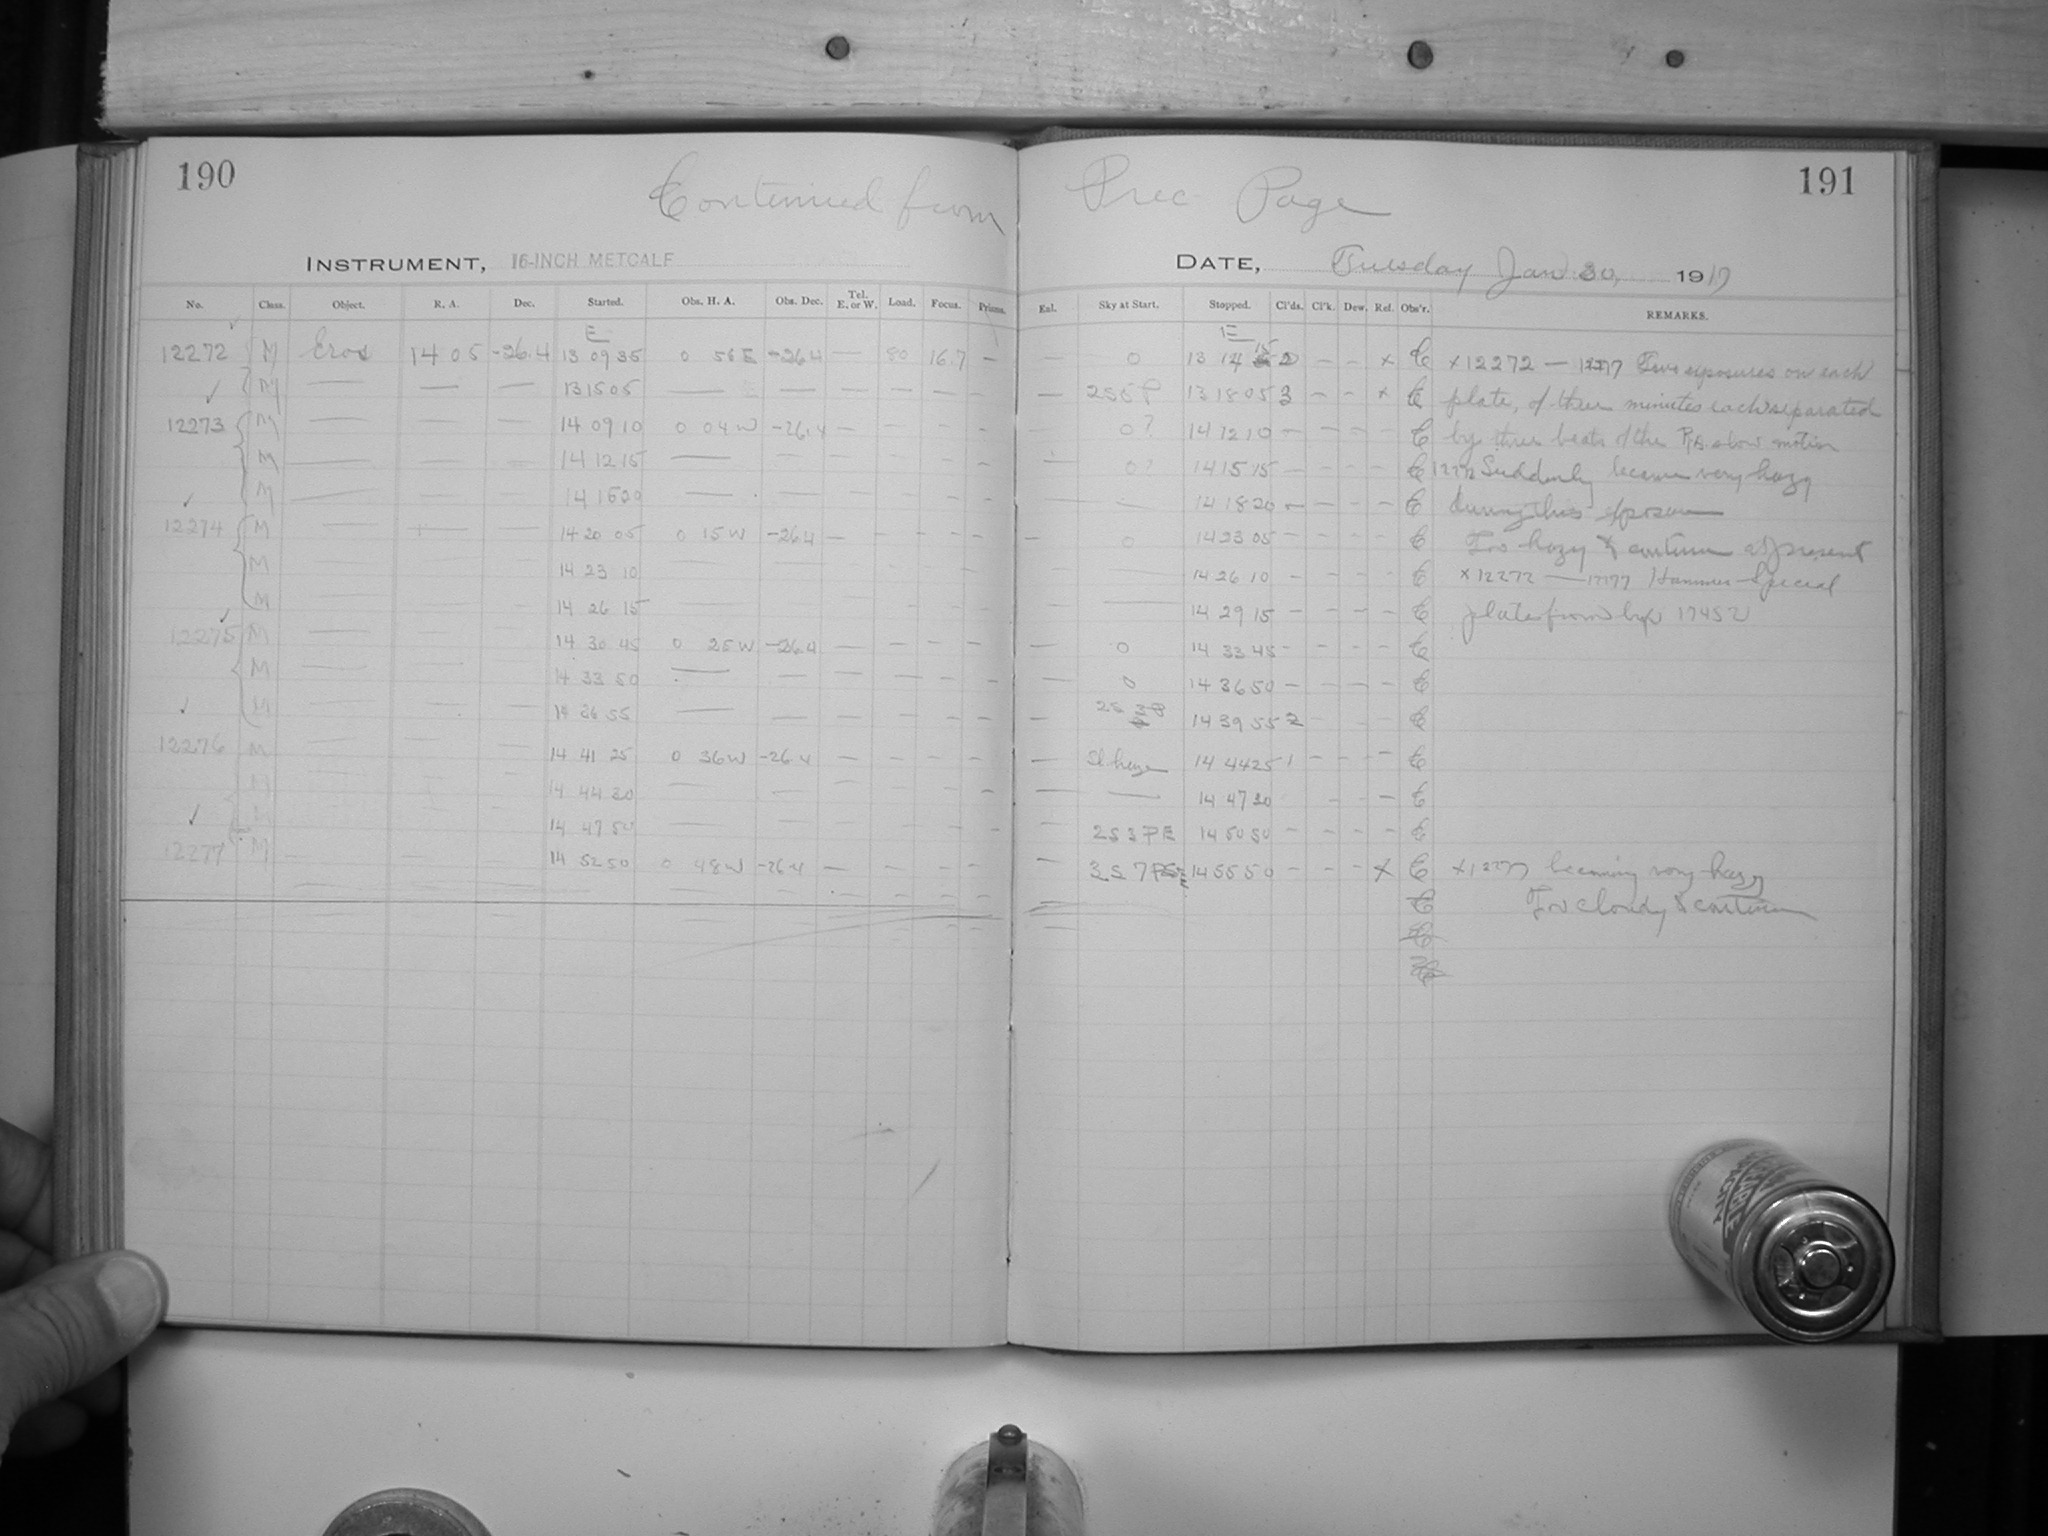 190
191
Continued from Prec. Page
INSTRUMENT, 16-INCH METCALF
DATE, Tuesday Jan 30, 1917
No. Class. Object. R. A. Dec. Started. Obs. H. A. Obs. Dec. Tel. E. or W. Load. Focus. Prisms. Enl. Sky at Start. Stopped. Cl'ds. Cl'k. Dew. Rel. Obs'r. REMARKS.
E E
12272 M Eros 14 05 -26.4 13 09 35 0 56 E -26.4 — 80 16.7 — — 0 13 14 2 — — x E x12272 — 12277 exposures on each
M — — — 13 15 05 — — 13 18 05 3 — — x E plate, of three minutes each separated
12273 M — — — 14 09 10 0 04 W -26.4 — — — — — 0? 14 12 10 — — — — E by three beats of the R.A. slow motion
M — — — 14 12 15 — — — — — — — 0? 14 15 15 — — — — E Suddenly became very hazy
M — — — 14 15 20 — — — — — — — — 14 18 20 — — — — E during this exposure
12274 M — — — 14 20 05 0 15 W -26.4 — — — — — 0 14 23 05 — — — — E Too hazy to continue at present
M — — — 14 23 10 — — — — — — — — 14 26 10 — — — — E x12272 — Hammer Special
M — — — 14 26 15 — — — — — — — — 14 29 15 — — — — E plates from box 17452
12275 M — — — 14 30 45 0 25 W -26.4 — — — — — 0 14 33 45 — — — — E
M — — — 14 33 50 — — — — — — — 0 14 36 50 — — — — E
M — — — 14 36 55 — — — — — — — 2S 14 39 55 2 — — — E
12276 M — — — 14 41 25 0 36 W -26.4 — — — — — Sl haze 14 44 25 1 — — — E
M — — — 14 44 30 — — — — — — — — 14 47 30 — — — E
M — — — 14 47 50 — — — — — — — 2S 3 P E 14 50 50 — — — — E
12277 M — — — 14 52 50 0 48 W -26.4 — — — — — 3S 7 14 55 50 — — — x E becoming very hazy
E Too cloudy to continue